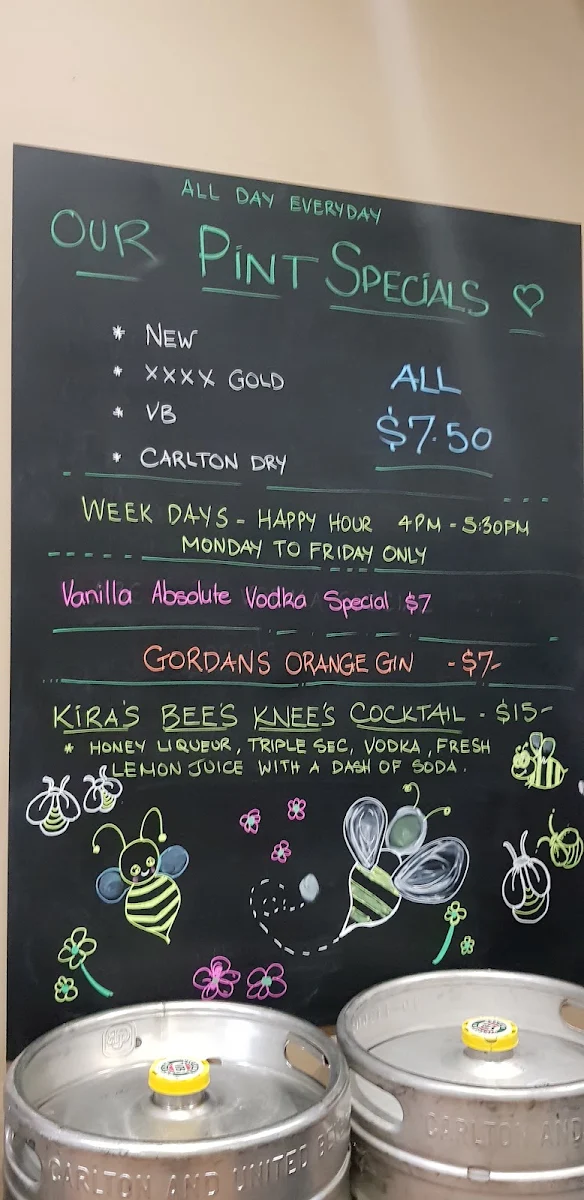 ALL DAY EVERYDAY
OUR PINT SPECIALS
* NEW
* XXXX GOLD
* VB
* CARLTON DRY
ALL
$7.50
WEEK DAYS - HAPPY HOUR 4PM - 5:30PM
MONDAY TO FRIDAY ONLY
Vanilla Absolute Vodka Special $7
GORDANS ORANGE GIN - $7-
KIRA'S BEE'S KNEE'S COCKTAIL - $15-
* HONEY LIQUEUR, TRIPLE SEC, VODKA, FRESH
LEMON JUICE WITH A DASH OF SODA.
CARLTON AND UNITED
CARLTON AND